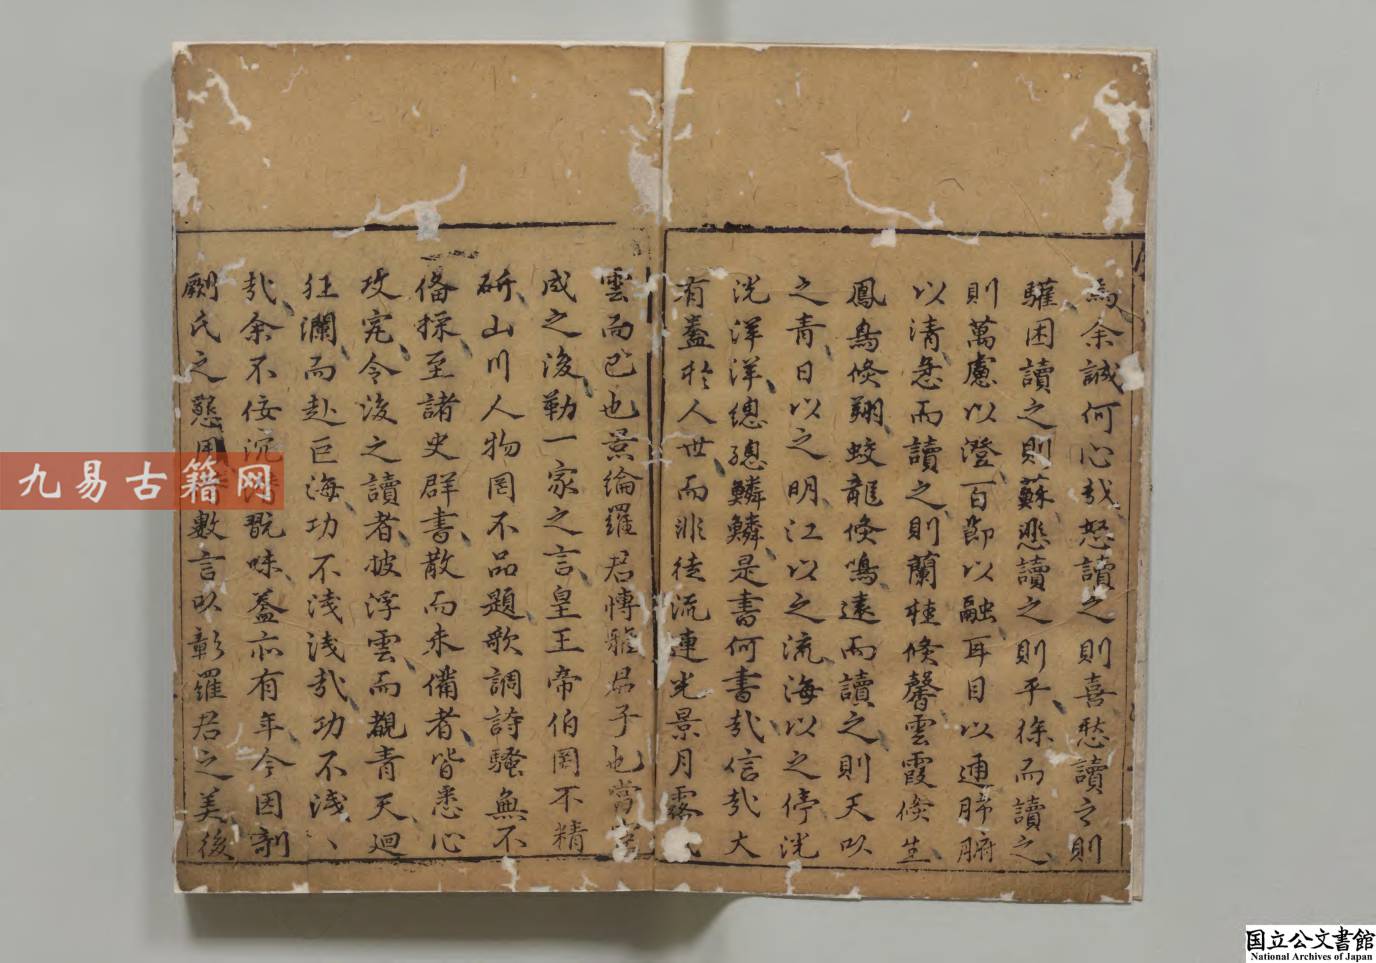 焉余誠何心哉怒讀之則喜愁讀之則
驩困讀之則蘇悲讀之則平徐而讀之
則萬慮以澄百節以融耳目以通肺腑
以清急而讀之則蘭桂倏馨雲霞倏生
鳳鳥倏翔蛟龍倏鳴遠而讀之則天以
之青日以之明江以之流海以之停洸
洸洋洋總總鱗鱗是書何書哉信哉大
有益於人世而非徒流連光景月露
雲而已也景綸羅君博雅君子也嘗
成之後勒一家之言皇王帝伯罔不精
研山川人物罔不品題歌調詩騷無不
備採至諸史群書散而未備者皆悉心
攻究令後之讀者披浮雲而覩青天迴
狂瀾而赴巨海功不淺淺哉功不淺〻
哉余不佞沉翫味蓋亦有年今因剞
劂氏之懇用數言以彰羅君之美後
九易古籍网
国立公文書館
National Archives of Japan